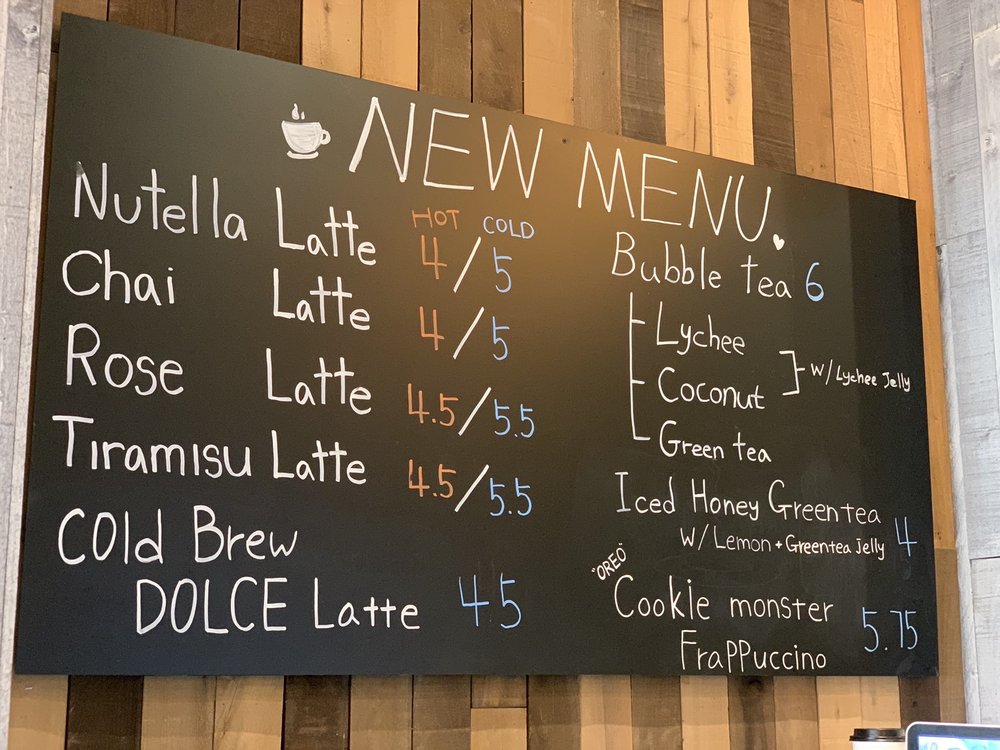 NEW MENU.
HOT COLD
Nutella Latte 4/5
Chai Latte 4/5
Rose Latte 4.5/5.5
Tiramisu Latte 4.5/5.5
COld Brew
DOLCE Latte 4.5
Bubble tea 6
Lychee
Coconut
w/ Lychee Jelly
Green tea
Iced Honey Greentea
w/ Lemon + Greentea Jelly 4
"OREO"
Cookie monster
Frappuccino 5.75